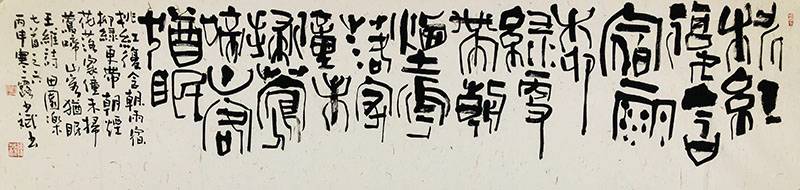 桃紅
復含
宿雨
柳
綠更
帶朝
煙花
落家
僮未
掃鶯
啼山客
猶眠
桃紅復含朝雨宿
柳綠更帶朝煙
花落家僮未掃
鶯啼山客猶眠
王維詩田園樂
七首之六
丙申寒露書